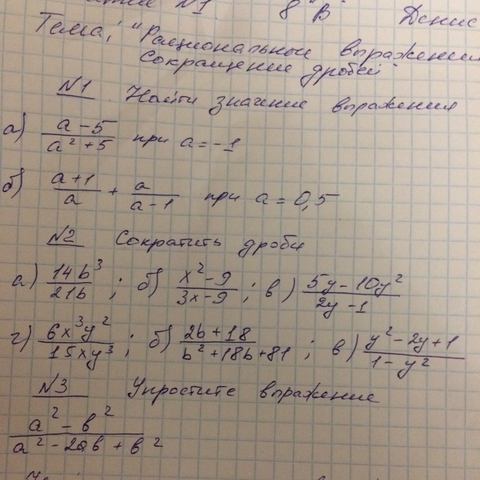 №1 8 "В" Денис
Тема: "Рациональные выражения
Сокращение дробей"
№1 Найти значение выражения
а) (a - 5)/(a² + 5) при a = -1
б) (a + 1)/a + a/(a - 1) при a = 0,5
№2 Сократить дроби
а) 14b³/21b ; б) (x² - 9)/(3x - 9) ; в) (5y - 10y²)/(2y - 1)
г) 6x³y²/15xy³ ; б) (2b + 18)/(b² + 18b + 81) ; в) (y² - 2y + 1)/(1 - y²)
№3 Упростите выражение
(a² - b²)/(a² - 2ab + b²)